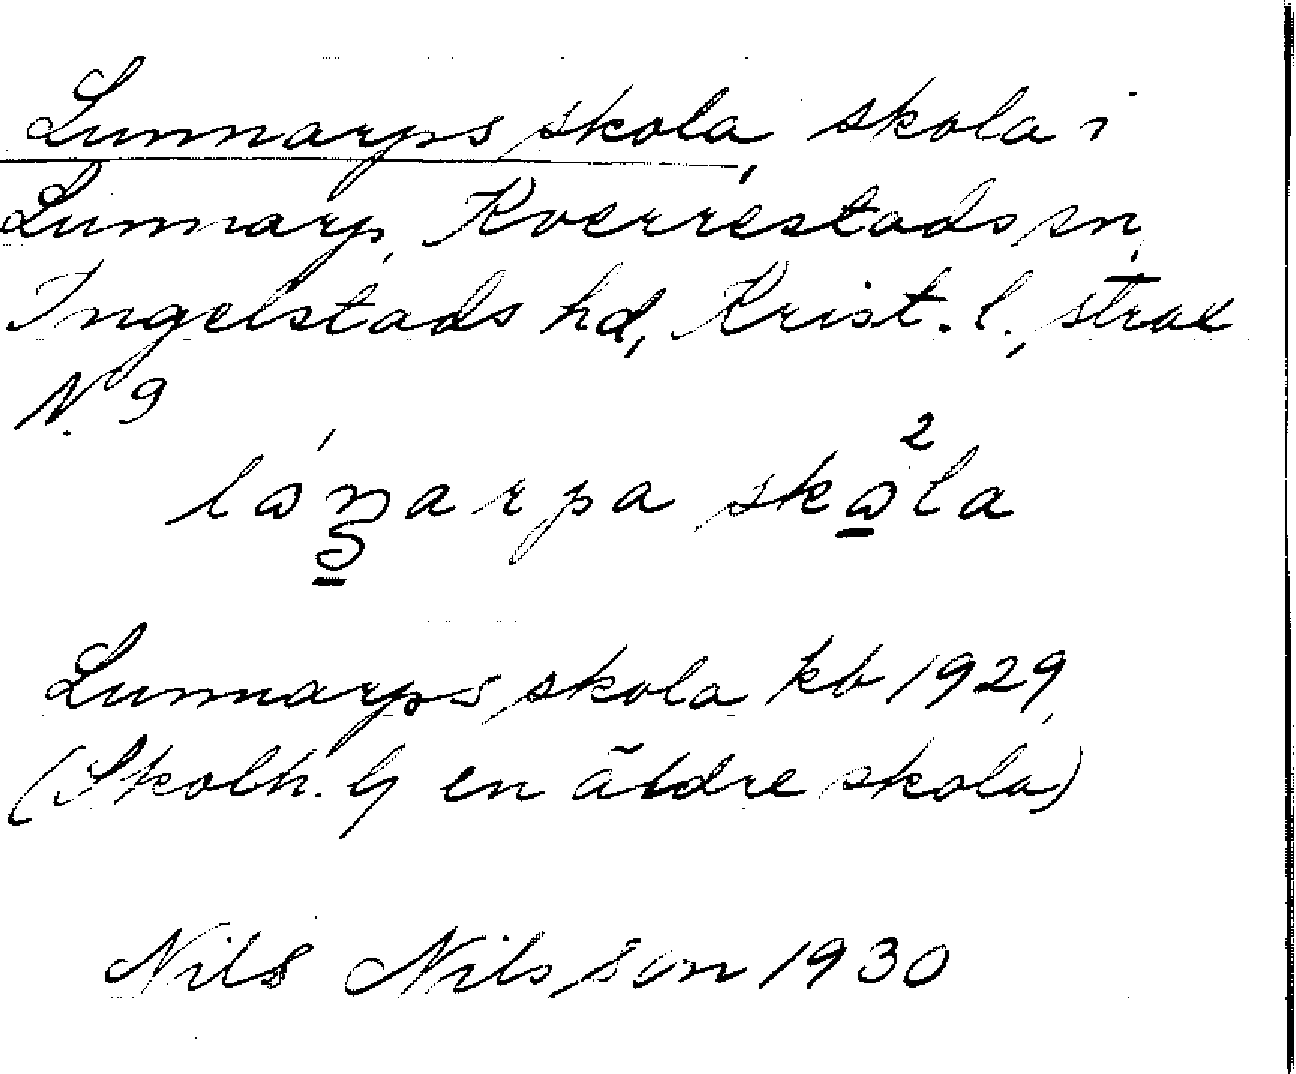 Lunnarps skola, skola i
Lunnarp, Kverrestads sn,
Ingelstads hd, Krist. l., strax
N. 9
skola
Lunnarps skola kb 1929,
(Skolh. G en äldre skola)
Nils Nilsson 1930